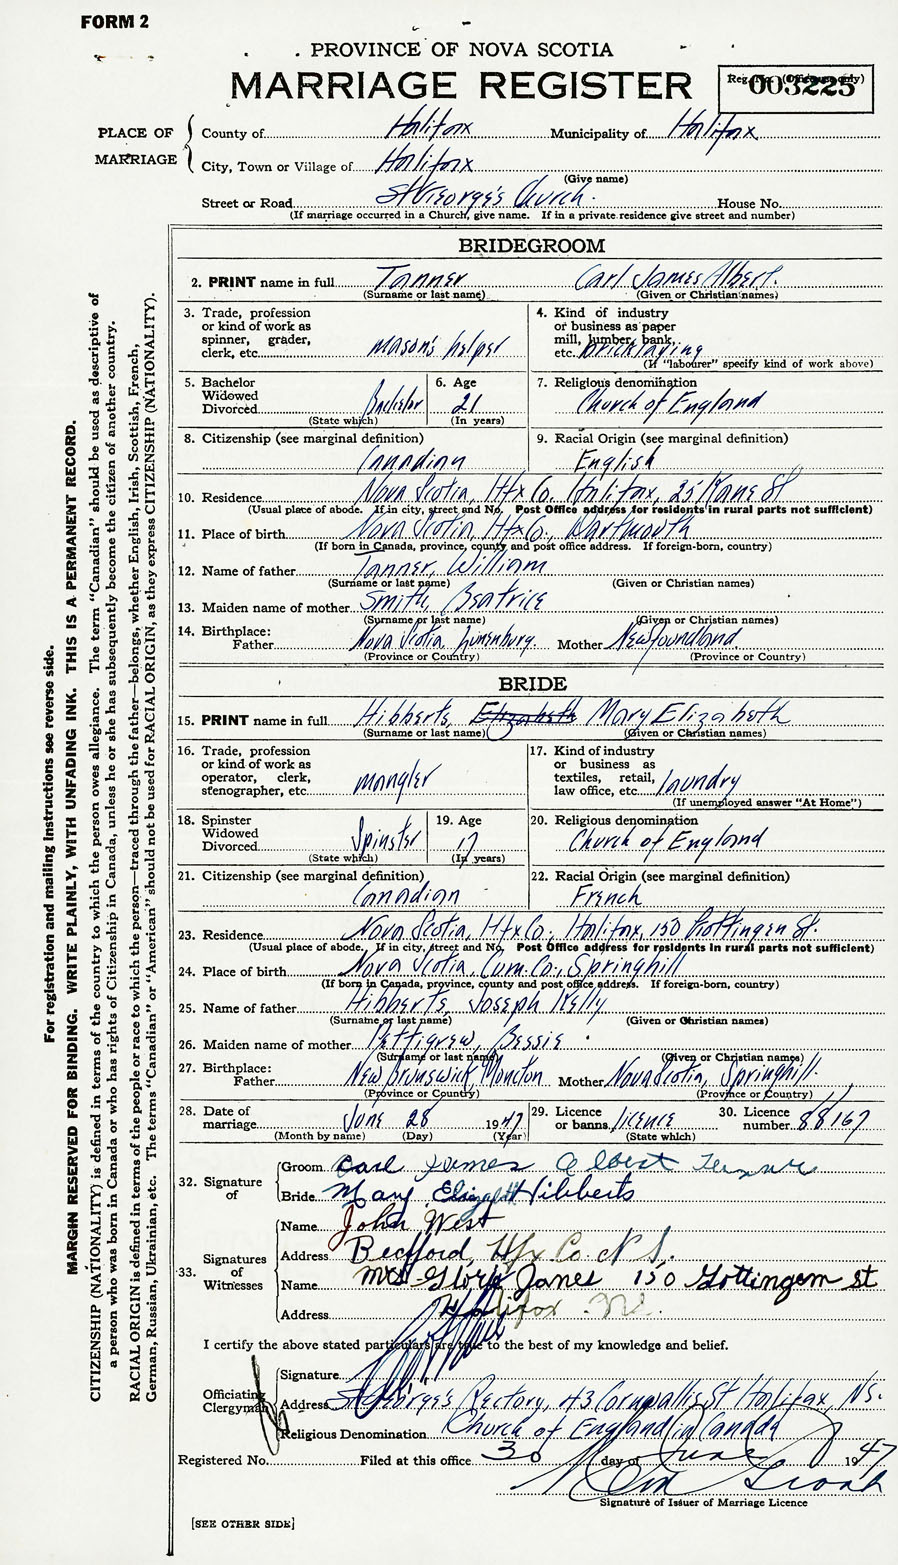 FORM 2
PROVINCE OF NOVA SCOTIA
MARRIAGE REGISTER
Reg. No. (Office use only)
003225
PLACE OF MARRIAGE
County of Halifax Municipality of Halifax
City, Town or Village of Halifax
(Give name)
Street or Road St George's Church. House No.
(If marriage occurred in a Church, give name. If in a private residence give street and number)
BRIDEGROOM
2. PRINT name in full Tanner Carl James Albert.
(Surname or last name) (Given or Christian names)
3. Trade, profession or kind of work as spinner, grader, clerk, etc. Mason's helper
4. Kind of industry or business as paper mill, lumber, bank, etc. bricklaying
(If "labourer" specify kind of work above)
5. Bachelor Widowed Divorced Bachelor
(State which)
6. Age 21
(In years)
7. Religious denomination
Church of England
8. Citizenship (see marginal definition)
Canadian
9. Racial Origin (see marginal definition)
English
10. Residence Nova Scotia, Hfx Co. Halifax, 25 Kane St
(Usual place of abode. If in city, street and No. Post Office address for residents in rural parts not sufficient)
11. Place of birth Nova Scotia, Hfx Co., Dartmouth
(If born in Canada, province, county and post office address. If foreign-born, country)
12. Name of father Tanner, William
(Surname or last name) (Given or Christian names)
13. Maiden name of mother Smith, Beatrice
(Surname or last name) (Given or Christian names)
14. Birthplace: Father Nova Scotia, Lunenburg. Mother Newfoundland.
(Province or Country) (Province or Country)
BRIDE
15. PRINT name in full Hibberts, Elizabeth Mary Elizabeth
(Surname or last name) (Given or Christian names)
16. Trade, profession or kind of work as operator, clerk, stenographer, etc. mangler
17. Kind of industry or business as textiles, retail, law office, etc. laundry
(If unemployed answer "At Home")
18. Spinster Widowed Divorced Spinster
(State which)
19. Age 17
(In years)
20. Religious denomination
Church of England
21. Citizenship (see marginal definition)
Canadian
22. Racial Origin (see marginal definition)
French
23. Residence Nova Scotia, Hfx Co., Halifax, 150 Gottingen St.
(Usual place of abode. If in city, street and No. Post Office address for residents in rural parts not sufficient)
24. Place of birth Nova Scotia, Cum. Co., Springhill
(If born in Canada, province, county and post office address. If foreign-born, country)
25. Name of father Hibberts, Joseph Kelly
(Surname or last name) (Given or Christian names)
26. Maiden name of mother Pettigrew, Bessie
(Surname or last name) (Given or Christian names)
27. Birthplace: Father New Brunswick, Moncton Mother Nova Scotia, Springhill.
(Province or Country) (Province or Country)
28. Date of marriage June 28 1947
(Month by name) (Day) (Year)
29. Licence or banns licence
(State which)
30. Licence number 88167
32. Signature of
Groom Carl James Albert Tanner
Bride Mary Elizabeth Hibberts
33. Signatures of Witnesses
Name John West
Address Bedford, Hfx Co. N.S.
Name Mrs Gloria Janes 150 Gottingem st
Address Halifax N.S.
I certify the above stated particulars are true to the best of my knowledge and belief.
Officiating Clergyman
Signature
Address St George's Rectory, 43 Cornwallis St Halifax, N.S.
Religious Denomination Church of England in Canada
Registered No. Filed at this office 30 day of June 1947
Signature of Issuer of Marriage Licence
[SEE OTHER SIDE]
For registration and mailing instructions see reverse side.
MARGIN RESERVED FOR BINDING. WRITE PLAINLY, WITH UNFADING INK. THIS IS A PERMANENT RECORD.
CITIZENSHIP (NATIONALITY) is defined in terms of the country to which the person owes allegiance. The term "Canadian" should be used as descriptive of
a person who was born in Canada or who has rights of Citizenship in Canada, unless he or she has subsequently become the citizen of another country.
RACIAL ORIGIN is defined in terms of the people or race to which the person—traced through the father—belongs, whether English, Irish, Scottish, French,
German, Russian, Ukrainian, etc. The terms "Canadian" or "American" should not be used for RACIAL ORIGIN, as they express CITIZENSHIP (NATIONALITY).